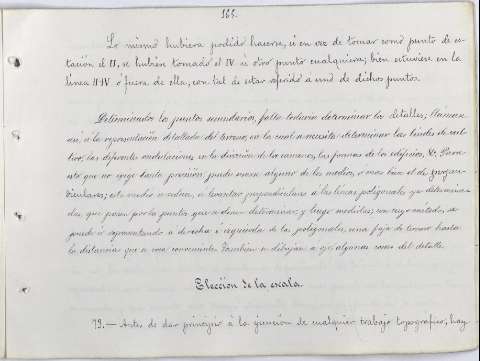 165.
Lo mismo hubiera podido hacerse, si en vez de tomar como punto de es-
tación el II, se hubiera tomado el IV ú otro punto cualquiera; bien estuviese en la
línea II-IV ó fuera de ella, con tal de estar referido a uno de dichos puntos.
Determinados los puntos secundarios, falta todavía determinar los detalles; llámase
así, á la representación detallada del terreno, en la cual se necesita determinar las lindes de cul-
tivos, las diferentes ondulaciones en la dirección de los caminos, las formas de los edificios, &. Para
esto que no exige tanta precisión, puede usarse alguno de los medios, ó mas bien el de perpen-
diculares; este medio se reduce, á levantar perpendiculares á las líneas poligonales ya determina-
das, que pasen por los puntos que se desea determinar, y luego medirlas; con cuyo método, se
puede ir representando a derecha é izquierda de las poligonales, una faja de terreno hasta
la distancia que se crea conveniente. También se dibujan a ojo, algunas cosas del detalle.
Elección de la escala.
79.— Antes de dar principio á la ejecución de cualquier trabajo topográfico, hay